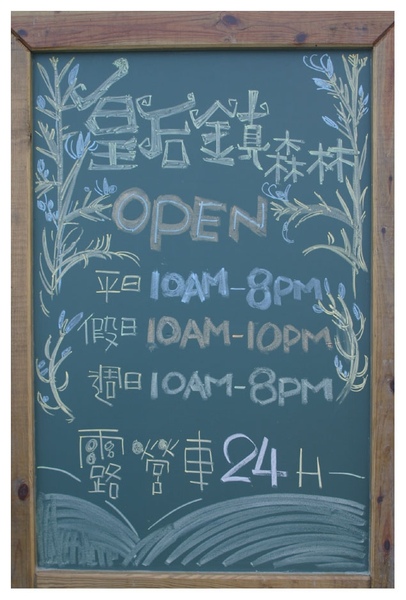 皇后鎮森林
OPEN
平日 10AM-8PM
假日 10AM-10PM
週日 10AM-8PM
露營車 24H